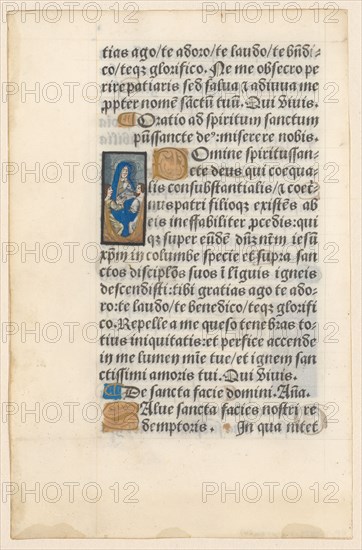 tias ago/te adoro/te laudo/te bn̄di-
co/teqꝫ glorifico. Ne me obsecro pe
rire patiaris sed salua & adiuua me
ꝓpter nomē sāctū tuū. Qui viuis.
Oratio ad spiritum sanctum
pūssancte deꝰ: miserere nobis.
Domine spiritussan-
cte deus qui coequa-
lis consubstantialis/& coet̓-
nus patri filioqꝫ existēs ab
eis ineffabiliter ꝓcedis: qui
qꝫ super eūdē dn̄ꝫ nēm iesū
xp̄m in columbe specie et supra san
ctos discipl̄os suos ī līguis igneis
descendisti: tibi gratias ago te ado
ro: te laudo/te benedico/teqꝫ glorifi
co. Repelle a me queso tenebras to-
tius iniquitatis: et perfice accende
in me lumen mīe tue/et ignem san
ctissimi amoris tui. Qui viuis.
De sancta facie domini. Aña.
Salue sancta facies nostri re
demptoris. In qua nitet
PHOTO12